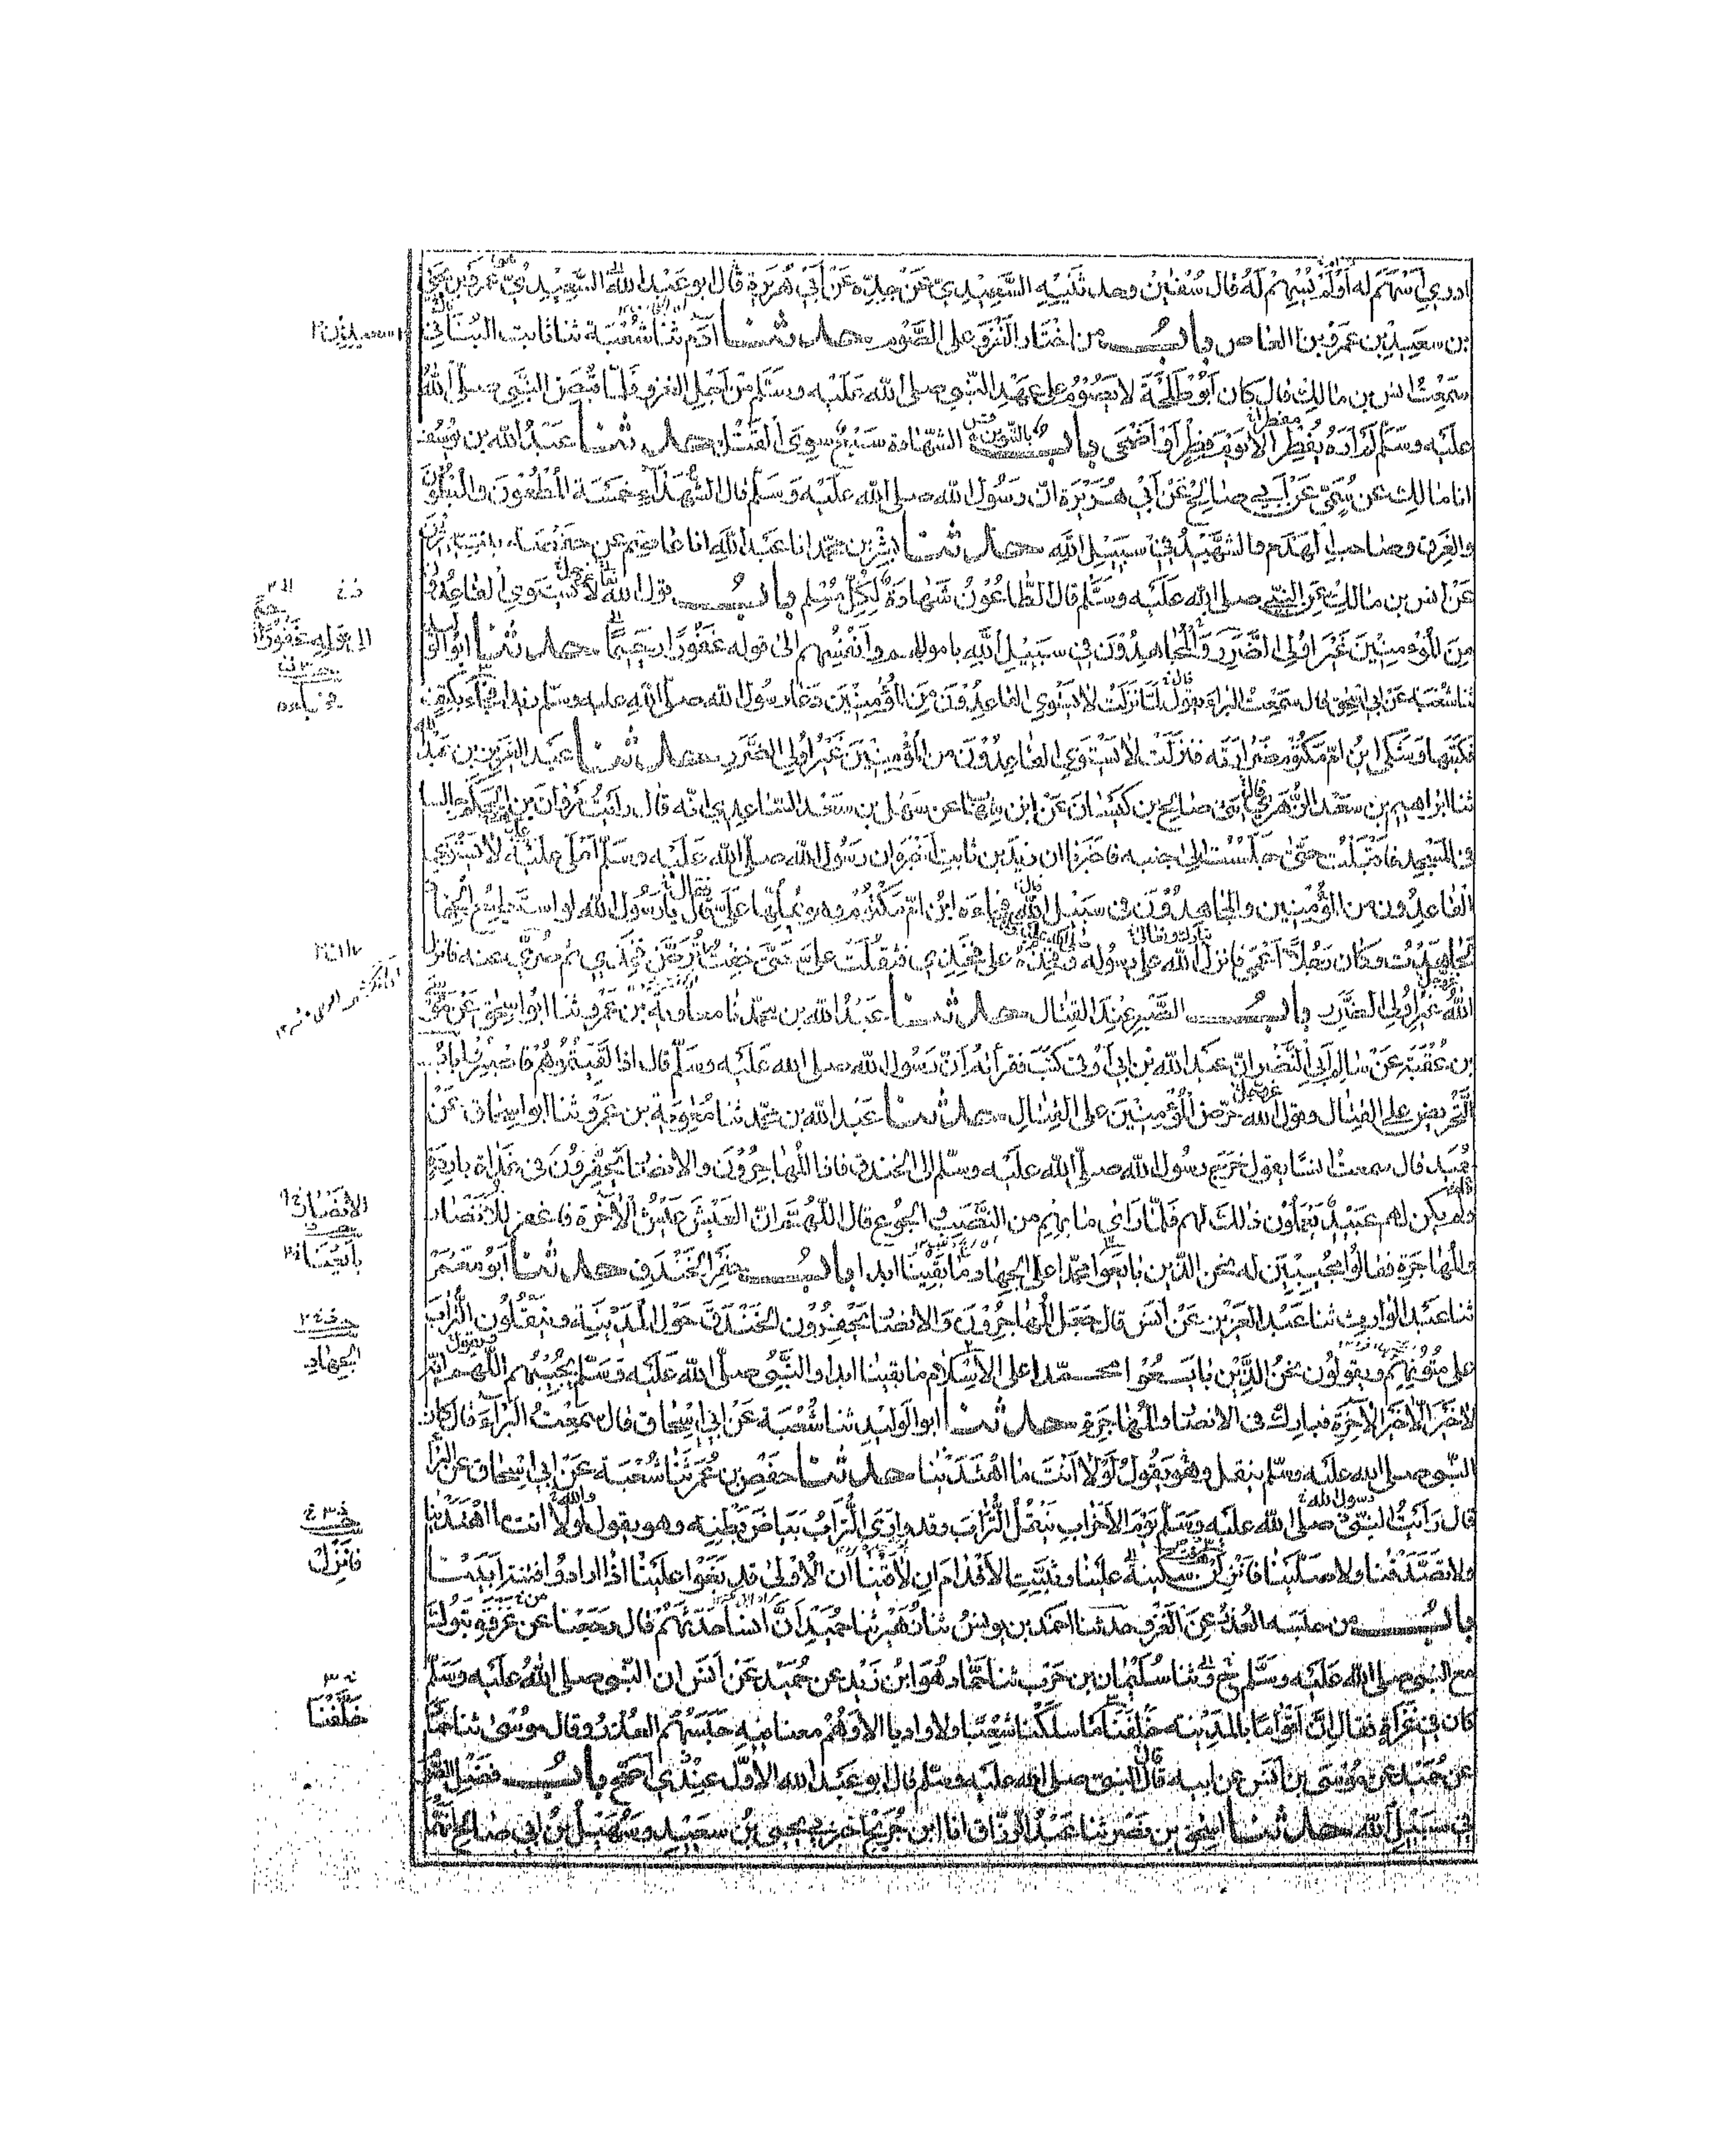 ادري أسهم له أو لم يسهم له قال سفين وحدثنيه السعيدي عن جده عن أبي هريرة قال ابو عبد الله السعيدي عمرو بن يحيى
بن سعيد بن عمرو بن العاص باب من اختار الغزو على الصوم حدثنا آدم ثنا شعبة ثنا ثابت البناني
سمعت انس بن مالك قال كان أبو طلحة لا يصوم على عهد النبي صلى الله عليه وسلم من أجل الغزو فلما قبض النبي صلى الله
عليه وسلم لم أره يفطر الا يوم فطر أو أضحى باب الشهادة سبع سوى القتل حدثنا عبد الله بن يوسف
انا مالك عن سمي عن أبي صالح عن أبي هريرة ان رسول الله صلى الله عليه وسلم قال الشهداء خمسة المطعون والمبطون
والغرق وصاحب الهدم والشهيد في سبيل الله حدثنا بشر بن محمد انا عبد الله انا عاصم عن حفصة بنت سيرين
عن انس بن مالك عن النبي صلى الله عليه وسلم قال الطاعون شهادة لكل مسلم باب قول الله لا يستوي القاعدون
من المؤمنين غير اولي الضرر والمجاهدون في سبيل الله باموالهم وانفسهم الى قوله غفورا رحيما حدثنا ابو الوليد
ثنا شعبة عن ابي اسحق قال سمعت البراء يقول لما نزلت لا يستوي القاعدون من المؤمنين دعا رسول الله صلى الله عليه وسلم زيدا فجاء بكتف
فكتبها وشكا ابن ام مكتوم ضرارته فنزلت لا يستوي القاعدون من المؤمنين غير أولي الضرر حدثنا عبد العزيز بن عبد الله
ثنا ابراهيم بن سعد الزهري ثنى صالح بن كيسان عن ابن شهاب عن سهل بن سعد الساعدي انه قال رأيت مروان بن الحكم جالسا
في المسجد فاقبلت حتى جلست الى جنبه فاخبرنا ان زيد بن ثابت أخبره ان رسول الله صلى الله عليه وسلم أملى عليه لا يستوي
القاعدون من المؤمنين والمجاهدون في سبيل الله فجاءه ابن ام مكتوم وهو يملها علي قال يا رسول الله لو استطيع الجهاد
لجاهدت وكان رجلا أعمى فانزل الله على رسوله وفخذه على فخذي فثقلت علي حتى خفت ان ترض فخذي ثم سري عنه فانزل
الله غير اولي الضرر باب الصبر عند القتال حدثنا عبد الله بن محمد ثنا معاوية بن عمرو ثنا ابو اسحق عن موسى
بن عقبة عن سالم أبي النضر ان عبد الله بن ابي أوفى كتب فقرأته أن رسول الله صلى الله عليه وسلم قال اذا لقيتموهم فاصبروا باب
التحريض على القتال وقول الله حرض المؤمنين على القتال حدثنا عبد الله بن محمد ثنا معوية بن عمرو ثنا ابو اسحاق عن
حميد قال سمعت انسا يقول خرج رسول الله صلى الله عليه وسلم الى الخندق فاذا المهاجرون والانصار يحفرون في غداة باردة
ولم يكن لهم عبيد يعملون ذلك لهم فلما رأى ما بهم من النصب والجوع قال اللهم ان العيش عيش الآخرة فاغفر للانصار
والمهاجرة فقالوا مجيبين له نحن الذين بايعوا محمدا على الجهاد ما بقينا ابدا باب حفر الخندق حدثنا أبو معمر
ثنا عبد الوارث ثنا عبد العزيز عن أنس قال جعل المهاجرون والانصار يحفرون الخندق حول المدينة وينقلون التراب
على متونهم ويقولون نحن الذين بايعوا محمدا على الاسلام ما بقينا ابدا والنبي صلى الله عليه وسلم يجيبهم اللهم انه
لا خير الا خير الآخرة فبارك في الانصار والمهاجرة حدثنا ابو الوليد ثنا شعبة عن ابي اسحاق قال سمعت البراء قال كان
النبي صلى الله عليه وسلم ينقل وهو يقول لولا أنت ما اهتدينا حدثنا حفص بن عمر ثنا شعبة عن ابي اسحاق عن البراء
قال رأيت النبي صلى الله عليه وسلم يوم الاحزاب ينقل التراب وقد وارى التراب بياض بطنه وهو يقول لولا انت ما اهتدينا
ولا تصدقنا ولا صلينا فأنزلن سكينة علينا وثبت الاقدام ان لاقينا ان الاولى قد بغوا علينا اذا ارادوا فتنة أبينا
باب من حبسه العذر عن الغزو حدثنا احمد بن يونس ثنا زهير ثنا حميد أن انسا حدثهم قال رجعنا عن غزوة تبوك
مع النبي صلى الله عليه وسلم ح وثنا سليمان بن حرب ثنا حماد هو ابن زيد عن حميد عن أنس ان النبي صلى الله عليه وسلم
كان في غزاة فقال ان أقواما بالمدينة خلفنا ما سلكنا شعبا ولا واديا الا وهم معنا فيه حبسهم العذر وقال موسى ثنا حماد
عن حميد عن موسى بن أنس عن ابيه قال النبي صلى الله عليه وسلم قال ابو عبد الله الأول عندي أصح باب فضل الصوم
في سبيل الله حدثنا اسحق بن نصر ثنا عبد الرزاق انا ابن جريج اخبرني يحيى بن سعيد وسهيل بن ابي صالح انهما
الانصار
الجهاد
فانزل
خلفنا